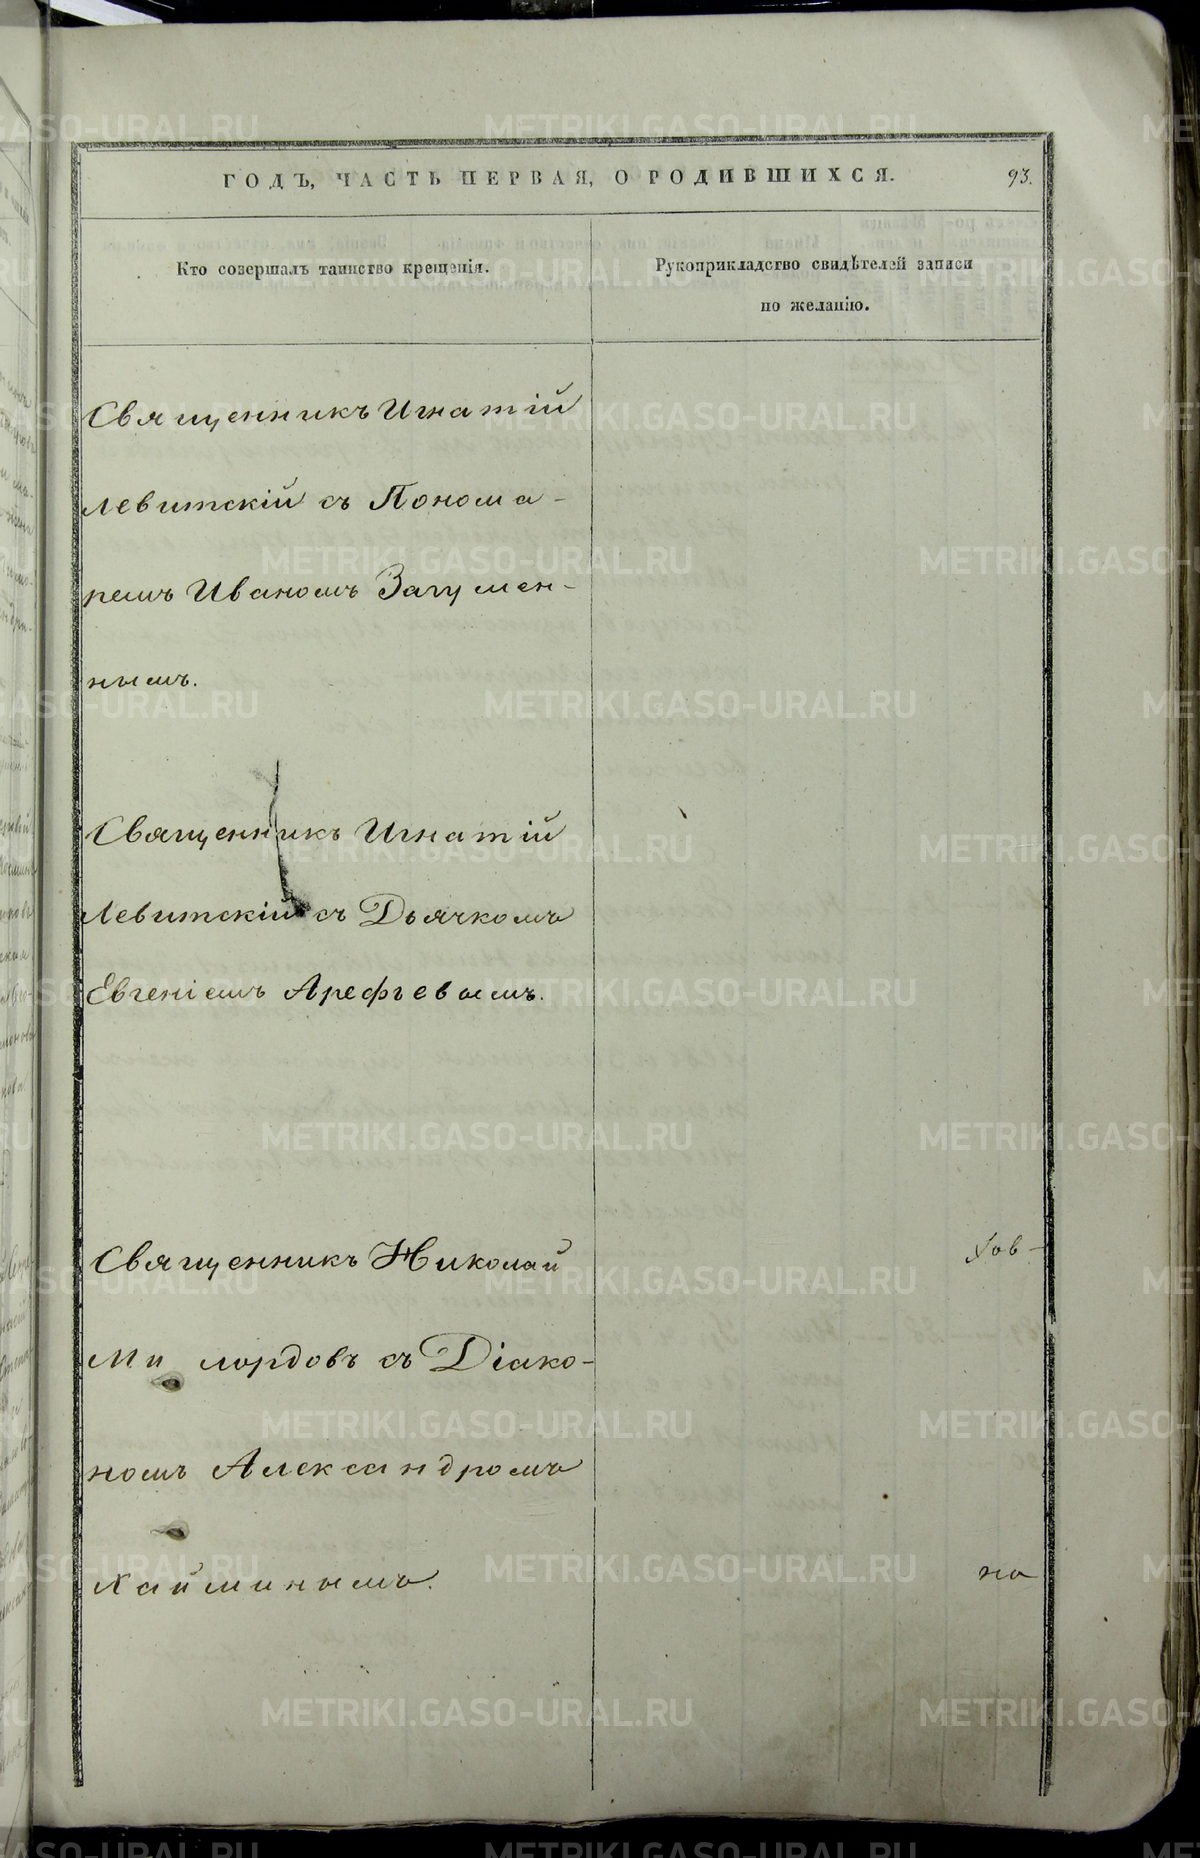 ГОДЪ, ЧАСТЬ ПЕРВАЯ, О РОДИВШИХСЯ.
93.
Кто совершалъ таинство крещенія.
Рукоприкладство свидѣтелей записи
по желанію.
Священникъ Игнатій
Левитскій съ Понома-
ремъ Иваномъ Загумен-
нымъ.
Священникъ Игнатій
Левитскій съ Дьячкомъ
Евгеніемъ Арефьевымъ.
Священникъ Николай
Ми лордовъ съ Діако-
номъ Александромъ
Хайминымъ.
но
METRIKI.GASO-URAL.RU